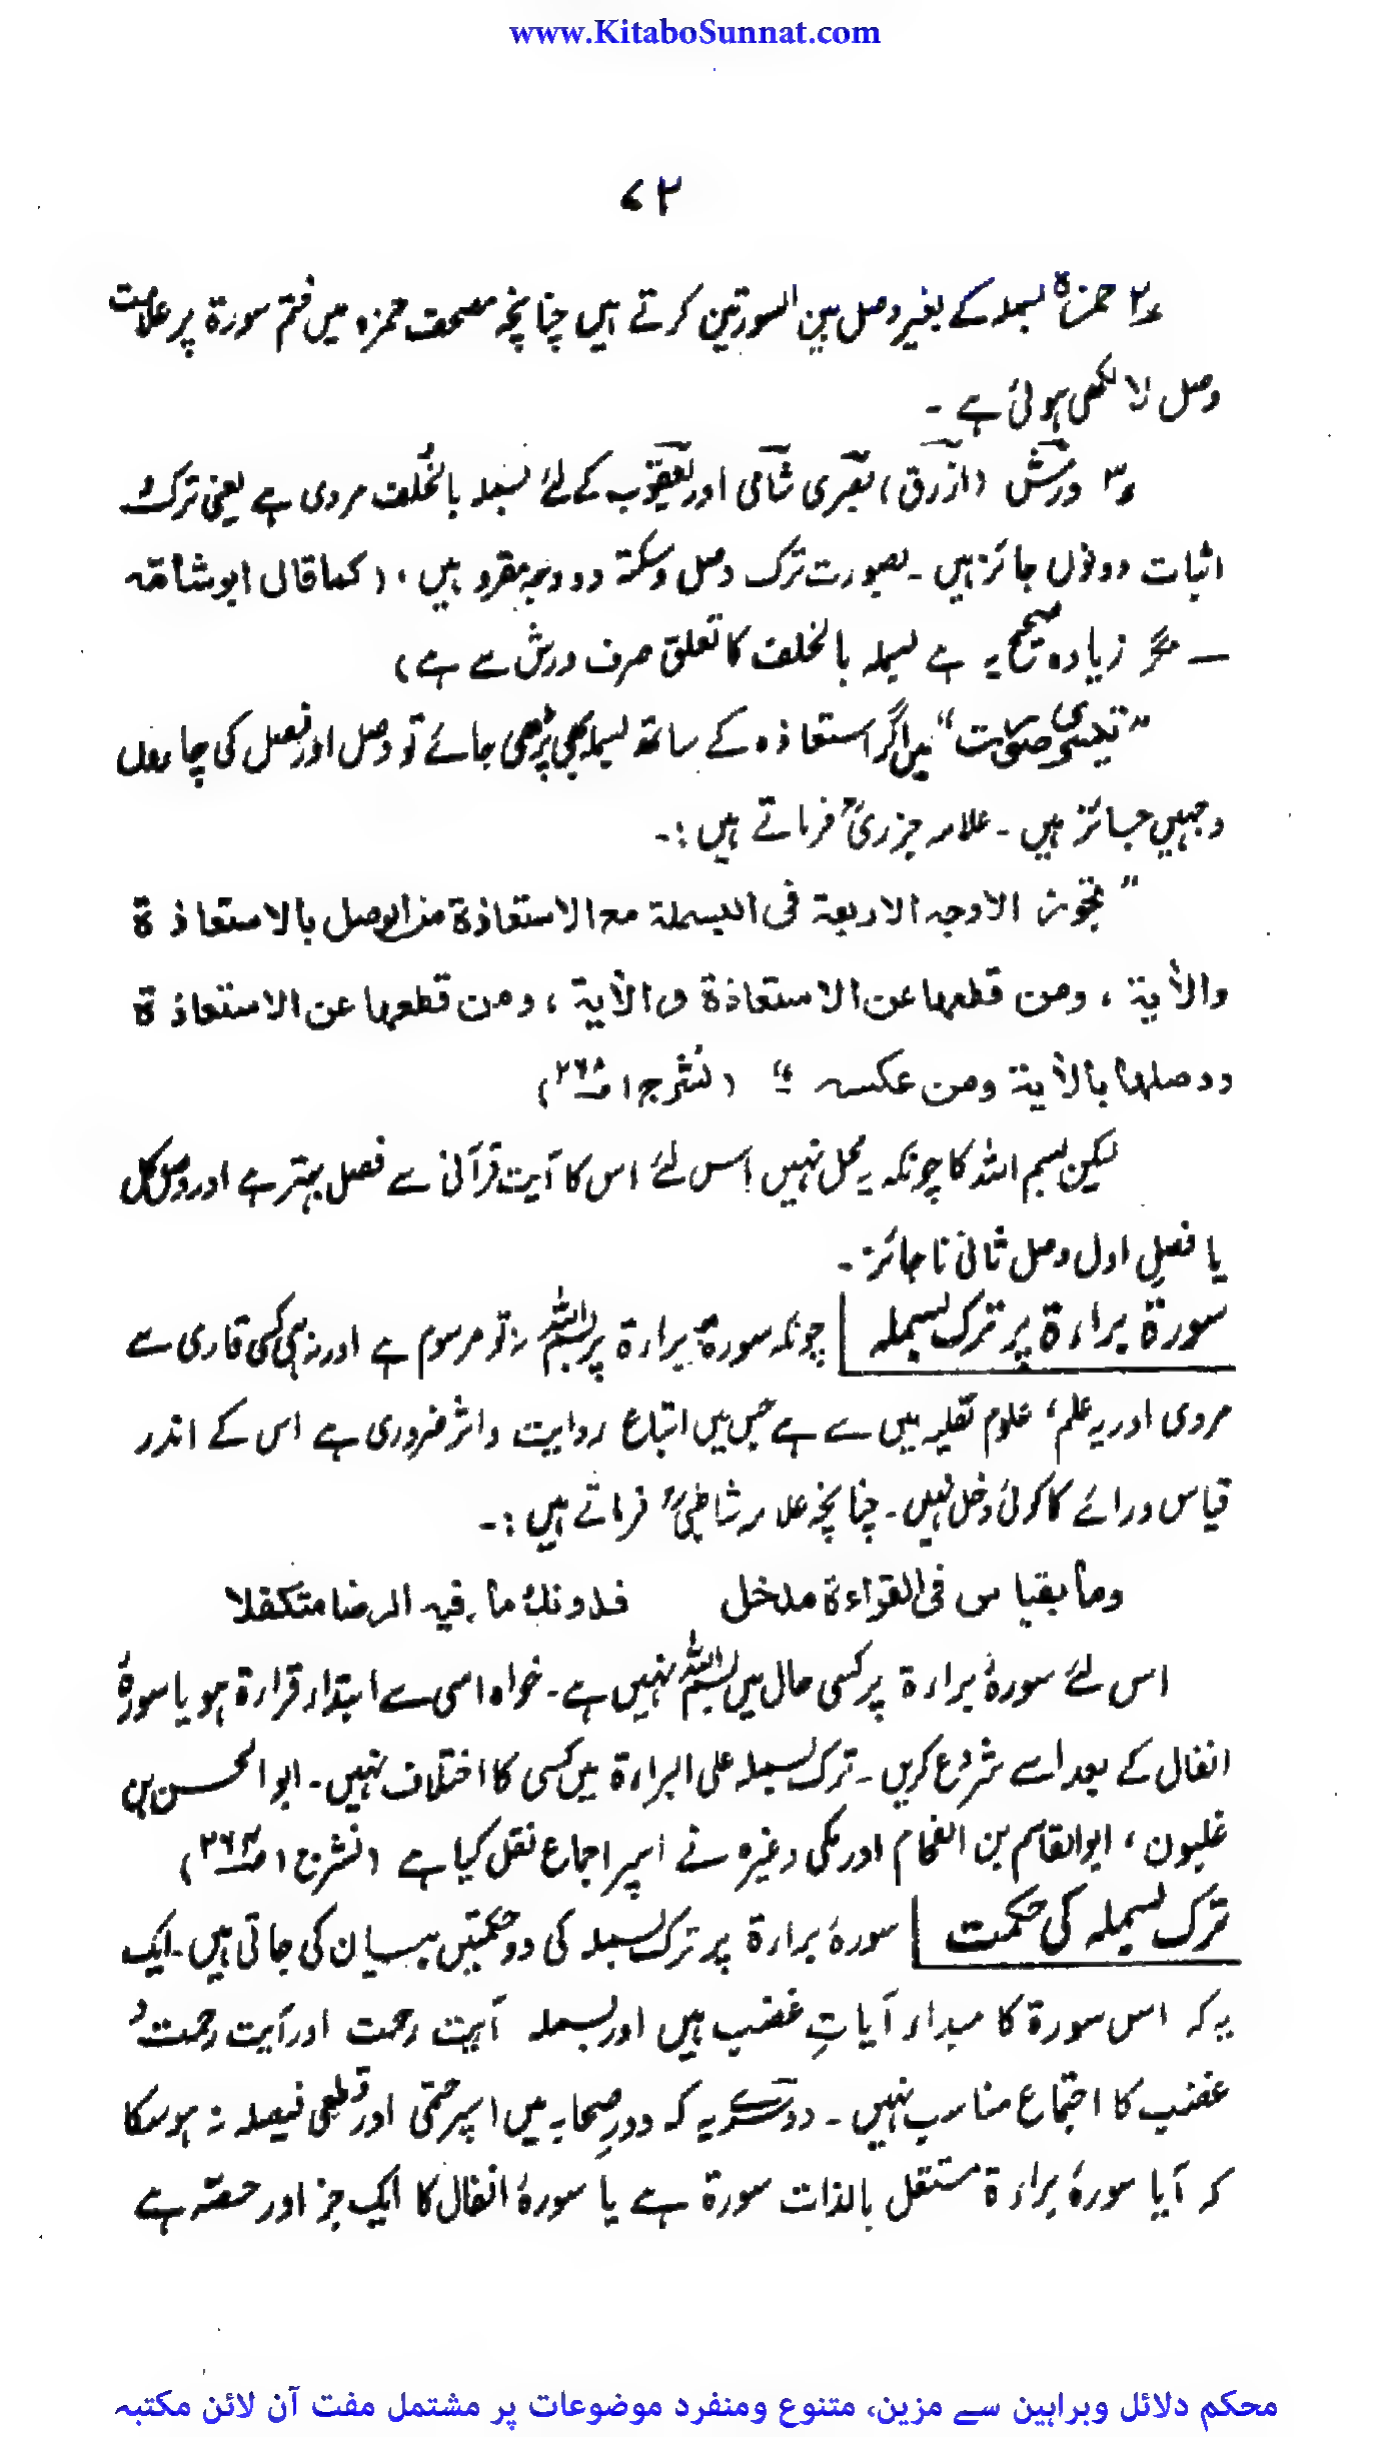 www.KitaboSunnat.com
۷۲
۲؎ حمزہؒ بسملہ کے بغیر وصل بین السورتین کرتے ہیں چنانچہ مصحف حمزہ میں ختم سورۃ پر علامت
وصل لا لکھی ہوئی ہے ۔
۳؎ ورش (ازرق) بصری شامی اور یعقوب کے لئے بسملہ بالخلف مروی ہے یعنی ترک و
اثبات دونوں جائز ہیں ۔ بصورت ترک وصل و سکتۃ دو وجہ مقرو ہیں ، (کما قال ابو شامۃ
— مگر زیادہ صحیح یہ ہے بسملہ بالخلف کا تعلق صرف ورش سے ہے)
”تیسری صورت“ میں اگر استعاذہ کے ساتھ بسملہ بھی پڑھی جائے تو وصل اور فصل کی چاروں
وجہیں جائز ہیں ۔ علامہ جزریؒ فرماتے ہیں :۔
” تجوز الاوجہ الاربعۃ فی البسملۃ مع الاستعاذۃ من الوصل بالاستعاذۃ
والأیۃ ، ومن قطعہا عن الاستعاذۃ والأیۃ ، ومن قطعہا عن الاستعاذۃ
ووصلہا بالأیۃ ومن عکسہ “ (نشر ج ۱ صـ۲۶۸)
لیکن بسم اللہ کا چونکہ یہ محل نہیں اس لئے اس کا آیت قرآنی سے فصل بہتر ہے اور وصل کل
یا فصلِ اول وصل ثانی ناجائز ۔
سورۃ براءۃ پر ترک بسملہ | چونکہ سورۂ براءۃ پر بسم اللہ نہ تو مرسوم ہے اور نہ ہی کسی قاری سے
مروی اور یہ علم، علوم نقلیہ میں سے ہے جس میں اتباع روایت و اثر ضروری ہے اس کے اندر
قیاس و رائے کا کوئی دخل نہیں ۔ چنانچہ علامہ شاطبیؒ فرماتے ہیں :۔
وما بقیاس فی القراءۃ مدخل فدونک ما فیہ الرضا متکفلا
اس لئے سورۂ براءۃ پر کسی حال میں بسم اللہ نہیں ہے ۔ خواہ اسی سے ابتداء قراءۃ ہو یا سورۂ
انفال کے بعد اسے شروع کریں ۔ ترک بسملہ علی البراءۃ میں کسی کا اختلاف نہیں ۔ ابو الحسن بن
غلبون ، ابو القاسم بن الفحام اور مکی وغیرہ نے اسپر اجماع نقل کیا ہے (نشر ج ۱ صـ۲۶۴)
ترک بسملہ کی حکمت | سورۂ براءۃ پر ترک بسملہ کی دو حکمتیں بیان کی جاتی ہیں ۔ ایک
یہ کہ اس سورۃ کا مبداء آیاتِ غضب ہیں اور بسملہ آیت رحمت اور آیت رحمت و
غضب کا اجتماع مناسب نہیں ۔ دوسرے یہ کہ دورِ صحابہ میں اسپر حتمی اور قطعی فیصلہ نہ ہو سکا
کہ آیا سورۂ براءۃ مستقل بالذات سورۃ ہے یا سورۂ انفال کا ایک جز اور حصہ ہے
محکم دلائل وبراہین سے مزین، متنوع ومنفرد موضوعات پر مشتمل مفت آن لائن مکتبہ